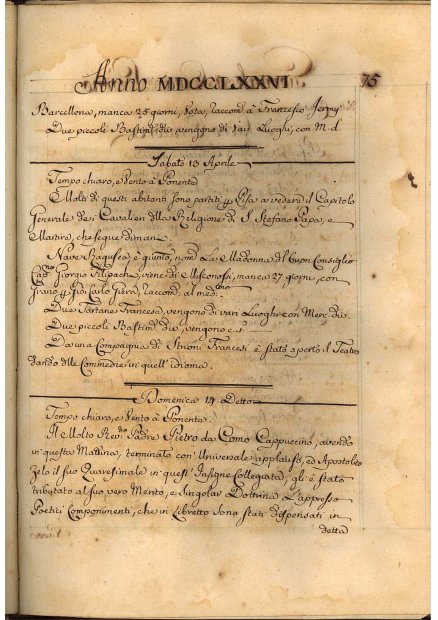 Anno MDCCLXXVI
75
Barcellona, manca 25 giorni, Vota, raccond. à Francesco Jermy
Due piccoli Bastim.ti div. vengono di varj Luoghi, con M. d.
Sabato 13 Aprile
Tempo chiaro, e Vento à Ponente
Molti di questi abitanti sono partiti p Pisa à vedere il Capitolo
Generale de i Cavalieri della Religione di S. Stefano Papa, e
Martire, che segue dimani.
Nave Ragusea è giunto, nom. La Madonna del buon Consiglio
Cap.no Giorgio viene di manca 27 giorni, con
Grano p Gio: Carlo raccond. al med.mo
Due Tartane Francesi, vengono di vari Luoghi con Merc. div.
Due piccoli Bastim. div. vengono c. s.
Da una Compagnia di Istrioni Francesi è stato aperto il Teatro
dando delle Commedie in quell' idioma.
Domenica 14 Detto
Tempo chiaro, e Vento à Ponente.
Il Molto Rev.do Padre Pietro da Como Cappuccino, avendo
in questa Mattina, terminato con Universale applauso, ed Apostolico
Zelo il suo Quaresimale in quest' Insigne Collegiata, gli è stato
tributato al suo vero Merito, e Singolar Dottrina L'appresso
Poetici Componimenti, che in Libretto sono stati dispensati in
detta